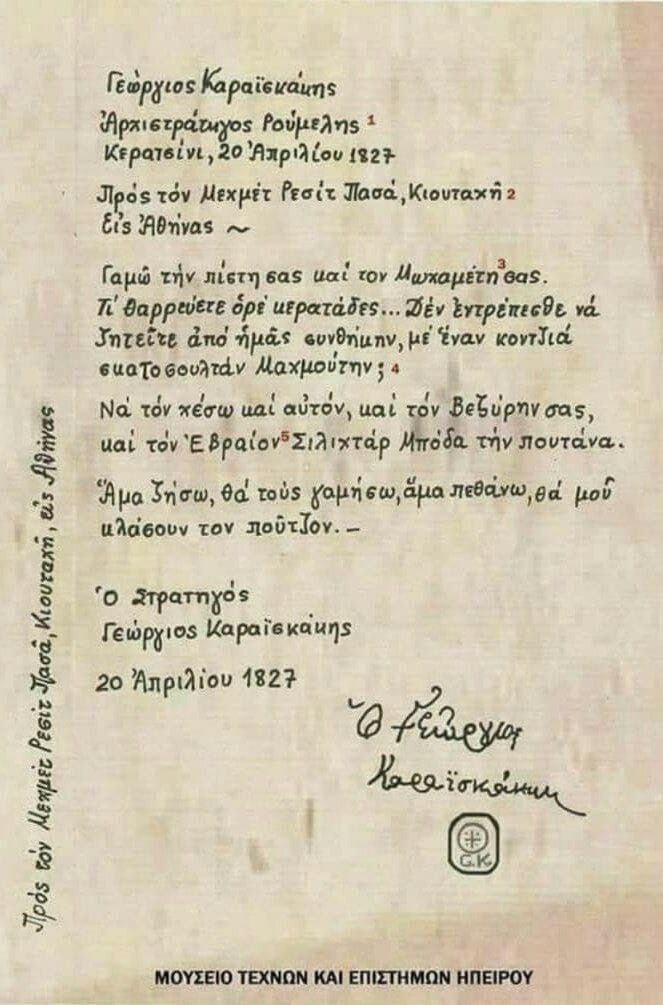 Γεώργιος Καραϊσκάκης
Ἀρχιστράτηγος Ρούμελης 1
Κερατσίνι, 20 Ἀπριλίου 1827
Πρός τόν Μεχμέτ Ρεσίτ Πασά, Κιουταχῆ 2
Εἰς Ἀθήνας ~
Γαμῶ τήν πίστη σας καί τον Μωχαμέτη 3 σας.
Τί θαρρεύετε ὀρέ κερατάδες... Δέν ἐντρέπεσθε νά
ζητεῖτε ἀπό ἡμᾶς συνθήκην, μέ ἕναν κοντζιά
σκατοσουλτάν Μαχμούτην; 4
Νά τόν χέσω καί αὐτόν, καί τόν Βεζύρην σας,
καί τόν Ἑβραίον 5 Σιλιχτάρ Μπόδα τήν πουτάνα.
Ἅμα ζήσω, θά τούς γαμήσω, ἅμα πεθάνω, θά μοῦ
κλάσουν τον πούτζον. –
Ὁ Στρατηγός
Γεώργιος Καραϊσκάκης
20 Ἀπριλίου 1827
Ὁ Γεώργιος
Καραϊσκάκης
G.K.
Πρός τόν Μεχμέτ Ρεσίτ Πασά, Κιουταχῆ, εἰς Ἀθήνας
ΜΟΥΣΕΙΟ ΤΕΧΝΩΝ ΚΑΙ ΕΠΙΣΤΗΜΩΝ ΗΠΕΙΡΟΥ